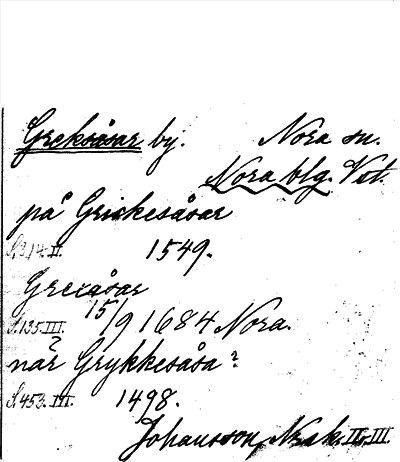 Greksåsar by. Nora sn.
Nora blg. Vst.
på Griekesåsar
S.314.II. 1549.
Grexåsar
S.135.III. 15/9 1684 Nora.
når Grykkesåsa?
S.453.III. 1498.
Johansson, Norak. II o. III.